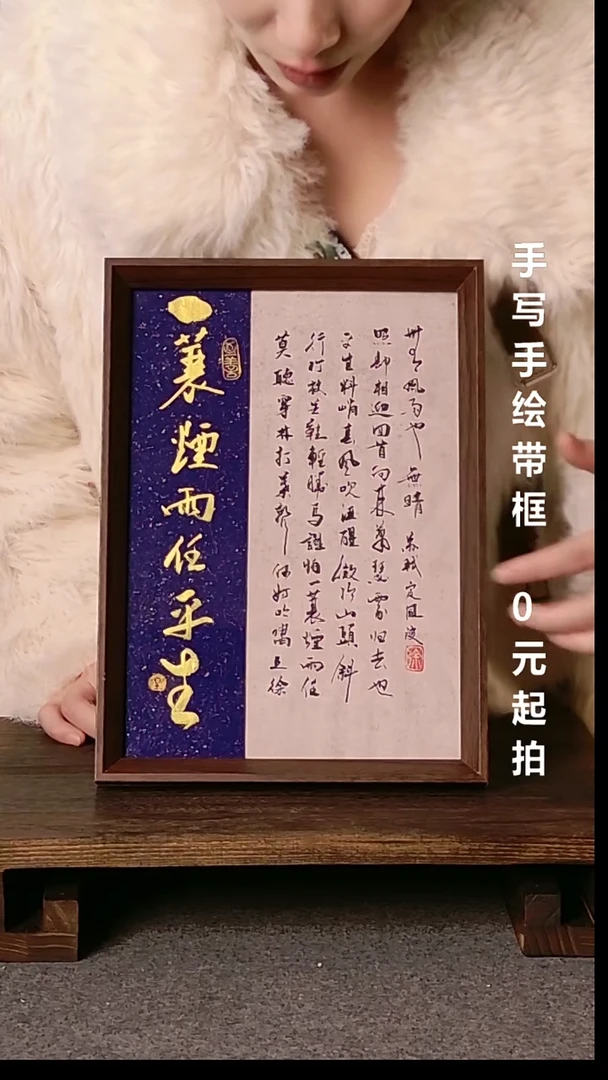 一蓑煙雨任平生
莫聽穿林打葉聲何妨吟嘯且徐
行竹杖芒鞋輕勝馬誰怕一蓑煙雨任
平生料峭春風吹酒醒微冷山頭斜
照卻相迎回首向來蕭瑟處归去也
無風雨也無晴 蘇軾定風波
手写手绘带框 0元起拍